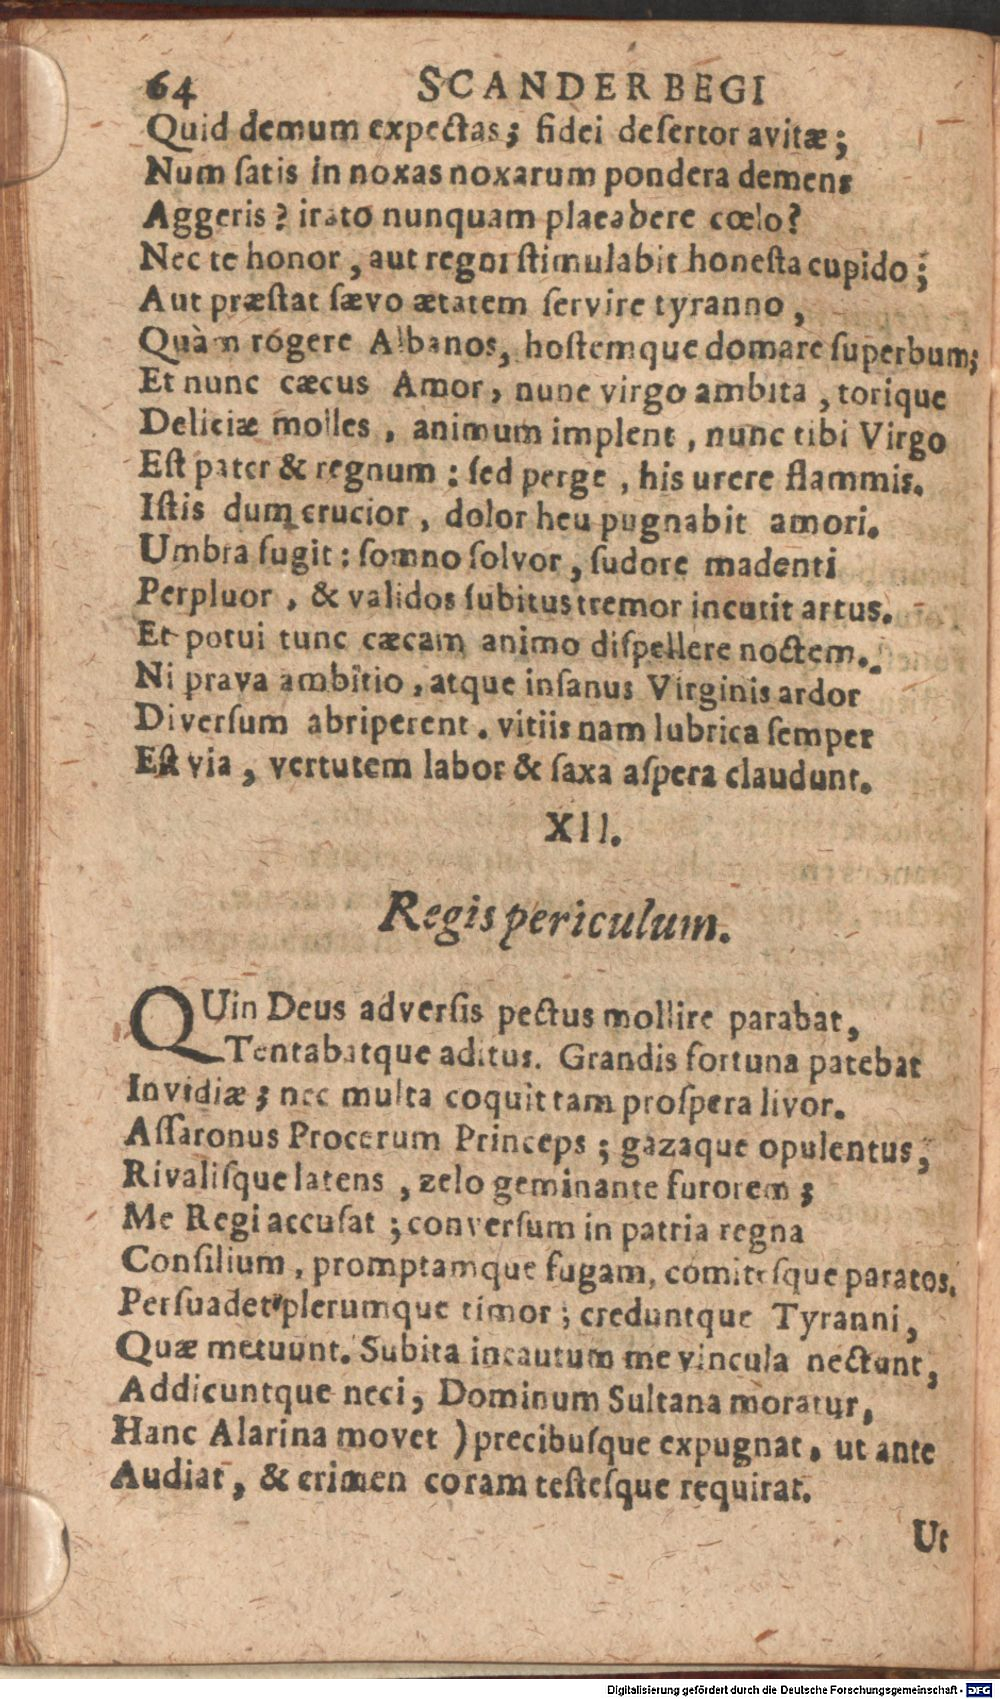 64 SCANDERBEGI
Quid demum expectas; fidei desertor avitæ;
Num satis in noxas noxarum pondera demens
Aggeris? irato nunquam placabere cœlo?
Nec te honor, aut regni stimulabit honesta cupido;
Aut præstat sævo ætatem servire tyranno,
Quàm rogere Albanos, hostemque domare superbum;
Et nunc cæcus Amor, nunc virgo ambita, torique
Deliciæ molles, animum implent, nunc tibi Virgo
Est pater & regnum: sed perge, his urere flammis.
Istis dum crucior, dolor heu pugnabit amori.
Umbra fugit: somno solvor, sudore madenti
Perpluor, & validos subitus tremor incutit artus.
Et potui tunc cæcam animo dispellere noctem.
Ni prava ambitio, atque insanus Virginis ardor
Diversum abriperent. vitiis nam lubrica semper
Est via, vertutem labor & saxa aspera claudunt.
XII.
Regis periculum.
QUin Deus adversis pectus mollire parabat,
Tentabatque aditus. Grandis fortuna patebat
Invidiæ; nec multa coquit tam prospera livor.
Assaronus Procerum Princeps; gazaque opulentus,
Rivalisque latens, zelo geminante furorem;
Me Regi accusat; conversum in patria regna
Consilium, promptamque fugam, comitesque paratos.
Persuadet plerumque timor; creduntque Tyranni,
Quæ metuunt. Subita incautum me vincula nectunt,
Addicuntque neci, Dominum Sultana moratur,
Hanc Alarina movet) precibusque expugnat, ut ante
Audiat, & crimen coram testesque requirat.
Ut
Digitalisierung gefördert durch die Deutsche Forschungsgemeinschaft - DFG